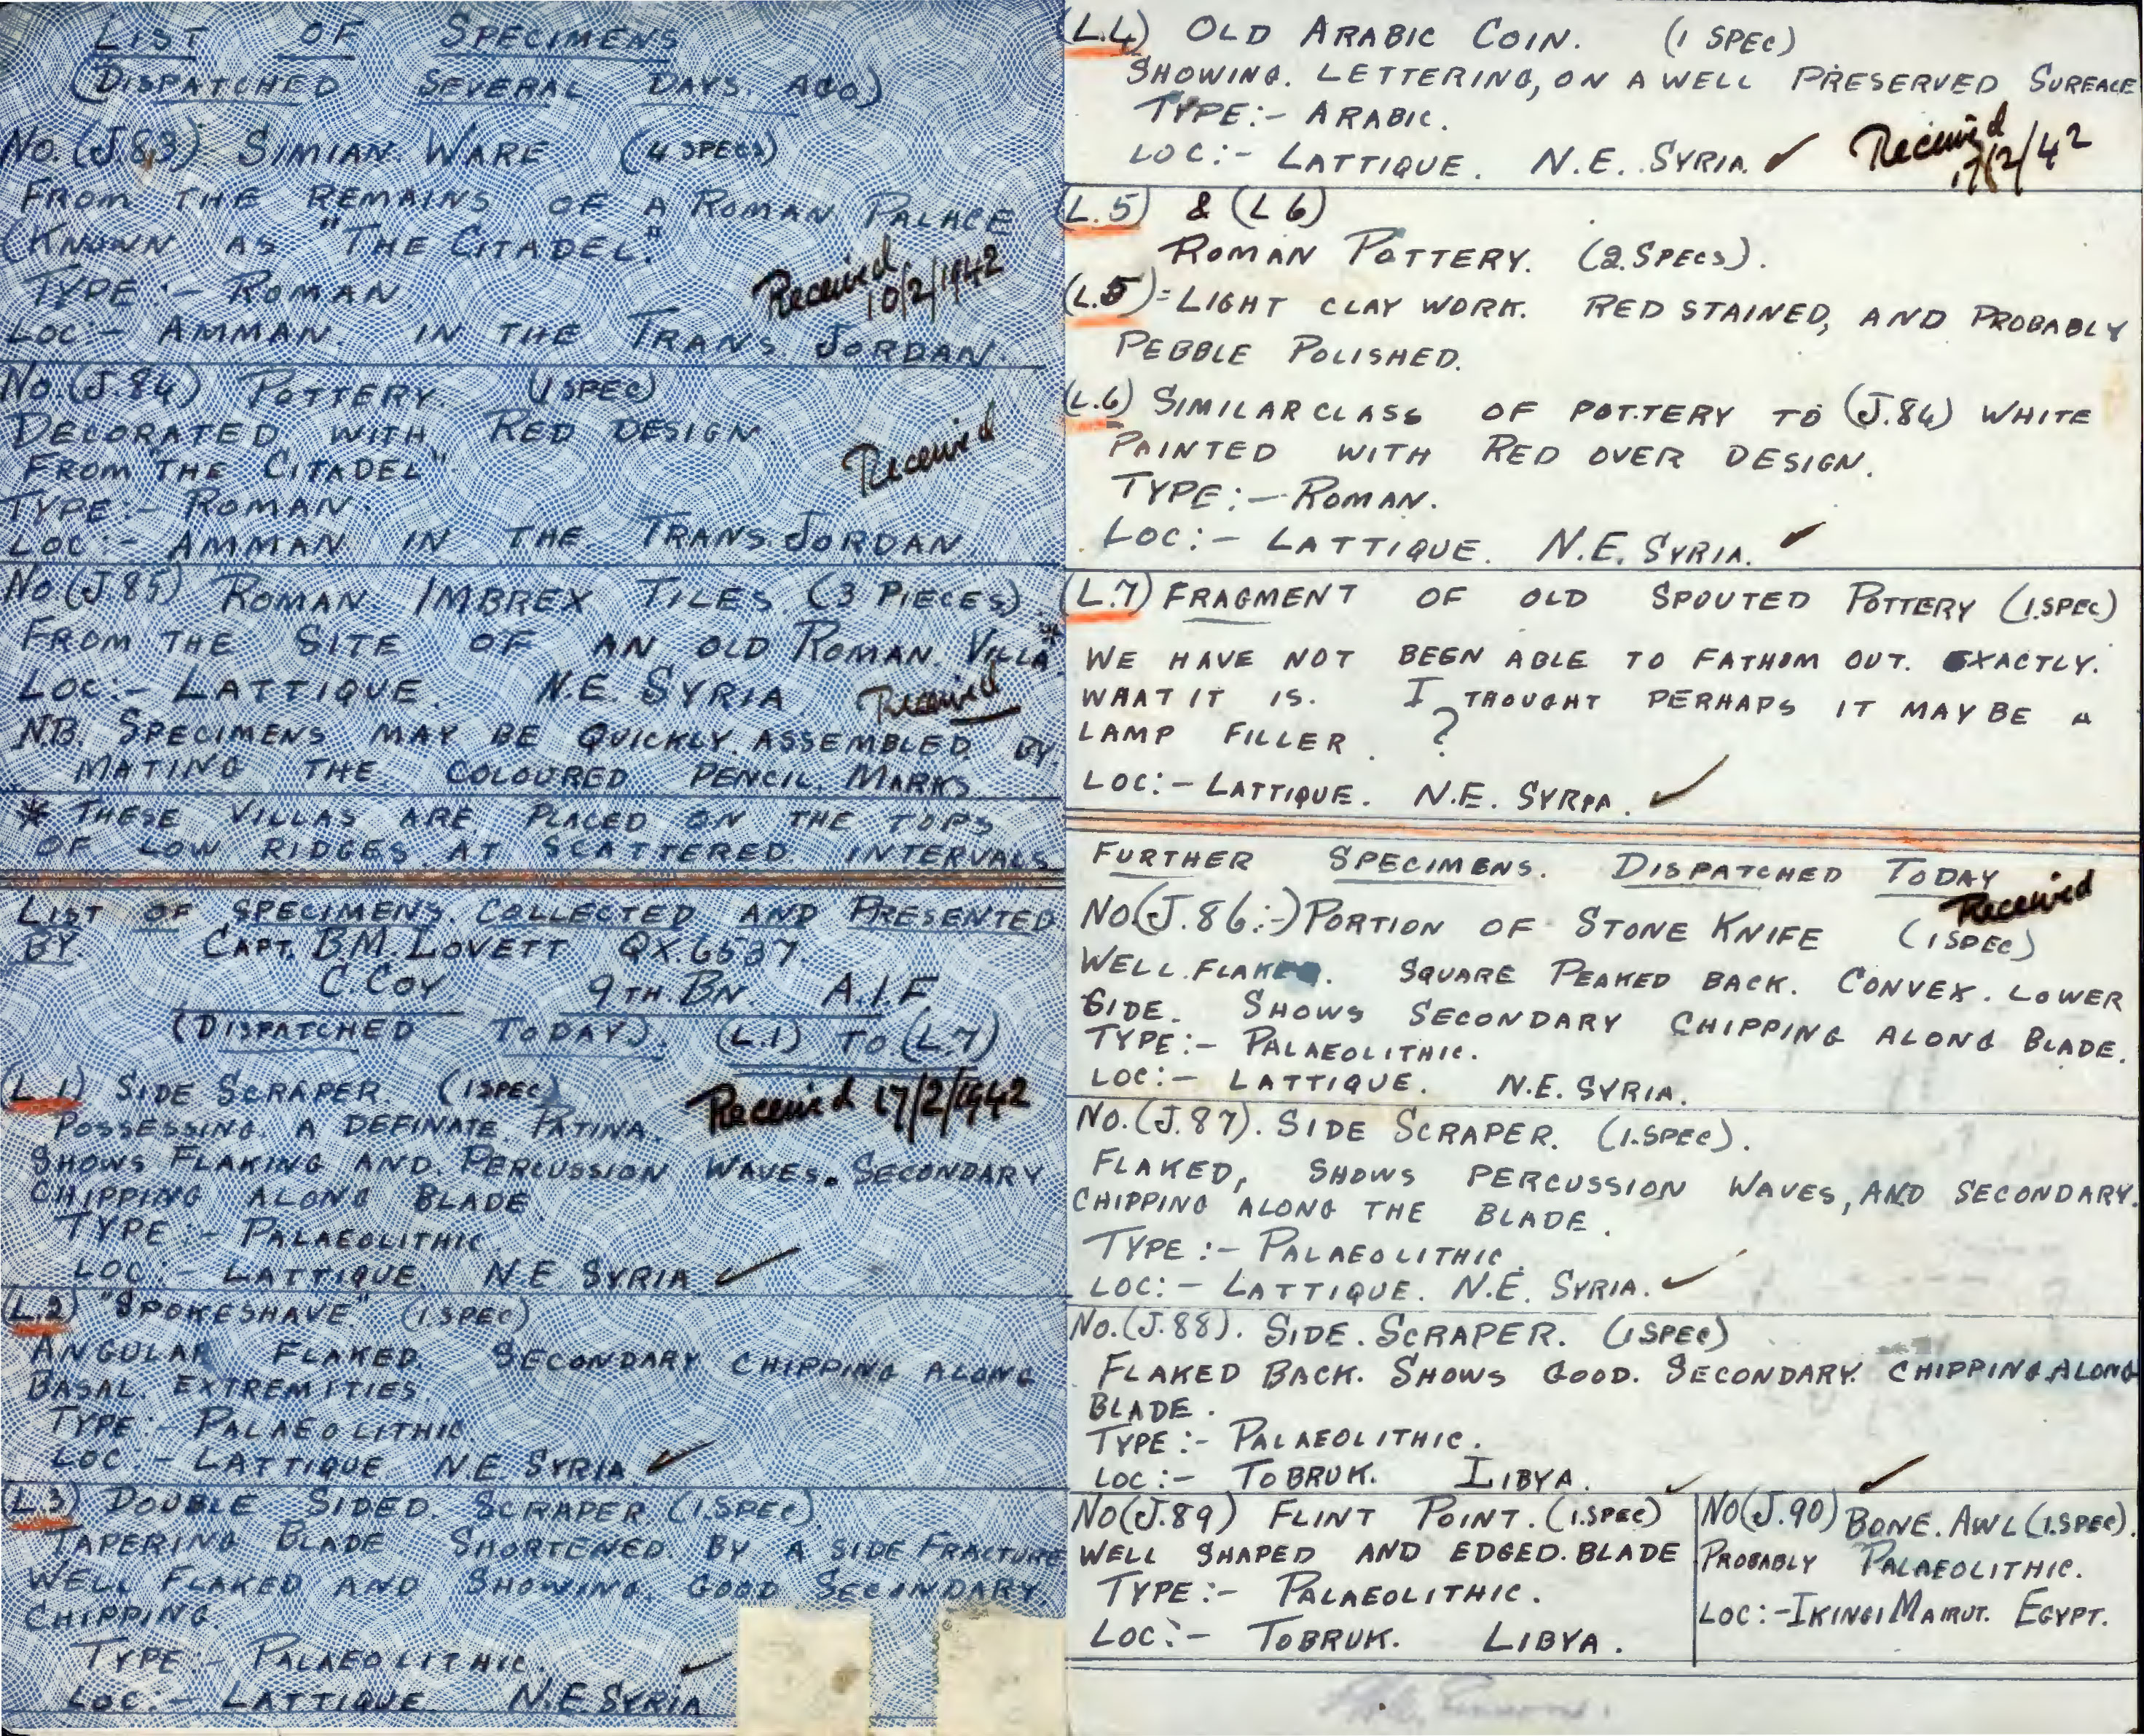 LIST OF SPECIMENS
(DISPATCHED SEVERAL DAYS. AGO)
NO. (J.83) SIMIAN WARE (4 SPECS)
FROM THE REMAINS OF A ROMAN PALACE
(KNOWN AS "THE CITADEL".
TYPE :- ROMAN
Received 10/2/1942
LOC:- AMMAN. IN THE TRANS. JORDAN.
NO. (J.84) POTTERY. (1 SPEC)
DECORATED WITH RED DESIGN.
FROM "THE CITADEL"
Received
TYPE :- ROMAN.
LOC :- AMMAN IN THE TRANS. JORDAN
NO. (J 85) ROMAN. IMBREX TILES. (3 PIECES).
FROM THE SITE OF AN OLD ROMAN. VILLA *
LOC:- LATTIQUE. N.E. SYRIA Received
N.B. SPECIMENS MAY BE QUICKLY. ASSEMBLED. BY.
MATING THE COLOURED PENCIL. MARKS.
* THESE VILLAS ARE. PLACED ON THE TOPS
OF LOW RIDGES. AT SCATTERED. INTERVALS
LIST OF SPECIMENS. COLLECTED AND PRESENTED
BY CAPT. B.M. LOVETT QX.6537
C. COY 9TH. BN. A.I.F
(DISPATCHED TODAY). (L.1) TO (L.7)
(L.1) SIDE SCRAPER. (1 SPEC) Received 17/2/1942
POSSESSING. A DEFINATE PATINA.
SHOWS FLAKING AND. PERCUSSION WAVES. SECONDARY
CHIPPING ALONG BLADE.
TYPE :- PALAEOLITHIC.
LOC :- LATTIQUE. N.E SYRIA ✓
(L.2) "SPOKESHAVE" (1 SPEC)
ANGULAR FLAKED. SECONDARY CHIPPING ALONG
BASAL. EXTREMITIES.
TYPE :- PALAEOLITHIC.
LOC :- LATTIQUE N E SYRIA. ✓
(L.3) DOUBLE SIDED. SCRAPER (1.SPEC).
TAPERING BLADE SHORTENED. BY A SIDE FRACTURE
WELL FLAKED AND SHOWING. GOOD SECONDARY.
CHIPPING.
TYPE :- PALAEOLITHIC. ✓
LOC :- LATTIQUE N.E SYRIA
(L.4) OLD ARABIC COIN. (1 SPEC)
SHOWING. LETTERING, ON A WELL PRESERVED SURFACE
TYPE:- ARABIC.
LOC:- LATTIQUE. N.E. SYRIA. ✓ Received 17/2/42
(L.5) & (L 6)
ROMAN POTTERY. (2. SPECS).
(L.5) = LIGHT CLAY WORK. RED STAINED, AND PROBABLY
PEBBLE POLISHED.
(L.6) SIMILAR CLASS OF POTTERY TO (J.84) WHITE
PAINTED WITH RED OVER DESIGN.
TYPE:- ROMAN.
LOC:- LATTIQUE. N.E. SYRIA. ✓
(L.7) FRAGMENT OF OLD SPOUTED POTTERY (1.SPEC)
WE HAVE NOT BEEN ABLE TO FATHOM OUT. EXACTLY.
WHAT IT IS. I THOUGHT PERHAPS IT MAY BE A
LAMP FILLER. ?
LOC:- LATTIQUE. N.E. SYRIA. ✓
FURTHER SPECIMENS. DISPATCHED TODAY
Received
NO. (J.86:-) PORTION OF STONE KNIFE (1 SPEC)
WELL. FLAKED. SQUARE PEAKED BACK. CONVEX. LOWER
SIDE. SHOWS SECONDARY CHIPPING ALONG BLADE.
TYPE:- PALAEOLITHIC.
LOC:- LATTIQUE. N.E. SYRIA.
NO. (J.87). SIDE SCRAPER. (1.SPEC).
FLAKED, SHOWS PERCUSSION WAVES, AND SECONDARY.
CHIPPING ALONG THE BLADE.
TYPE :- PALAEOLITHIC.
LOC:- LATTIQUE. N.E. SYRIA. ✓
NO. (J.88). SIDE. SCRAPER. (1 SPEC)
FLAKED BACK. SHOWS GOOD. SECONDARY. CHIPPING ALONG
BLADE.
TYPE:- PALAEOLITHIC.
LOC:- TOBRUK. LIBYA. ✓
NO (J.89) FLINT POINT. (1.SPEC)
WELL SHAPED AND EDGED. BLADE
TYPE:- PALAEOLITHIC.
LOC:- TOBRUK. LIBYA.
NO (J.90) BONE. AWL (1.SPEC).
PROBABLY PALAEOLITHIC.
LOC:- IKINGI MARUT. EGYPT.